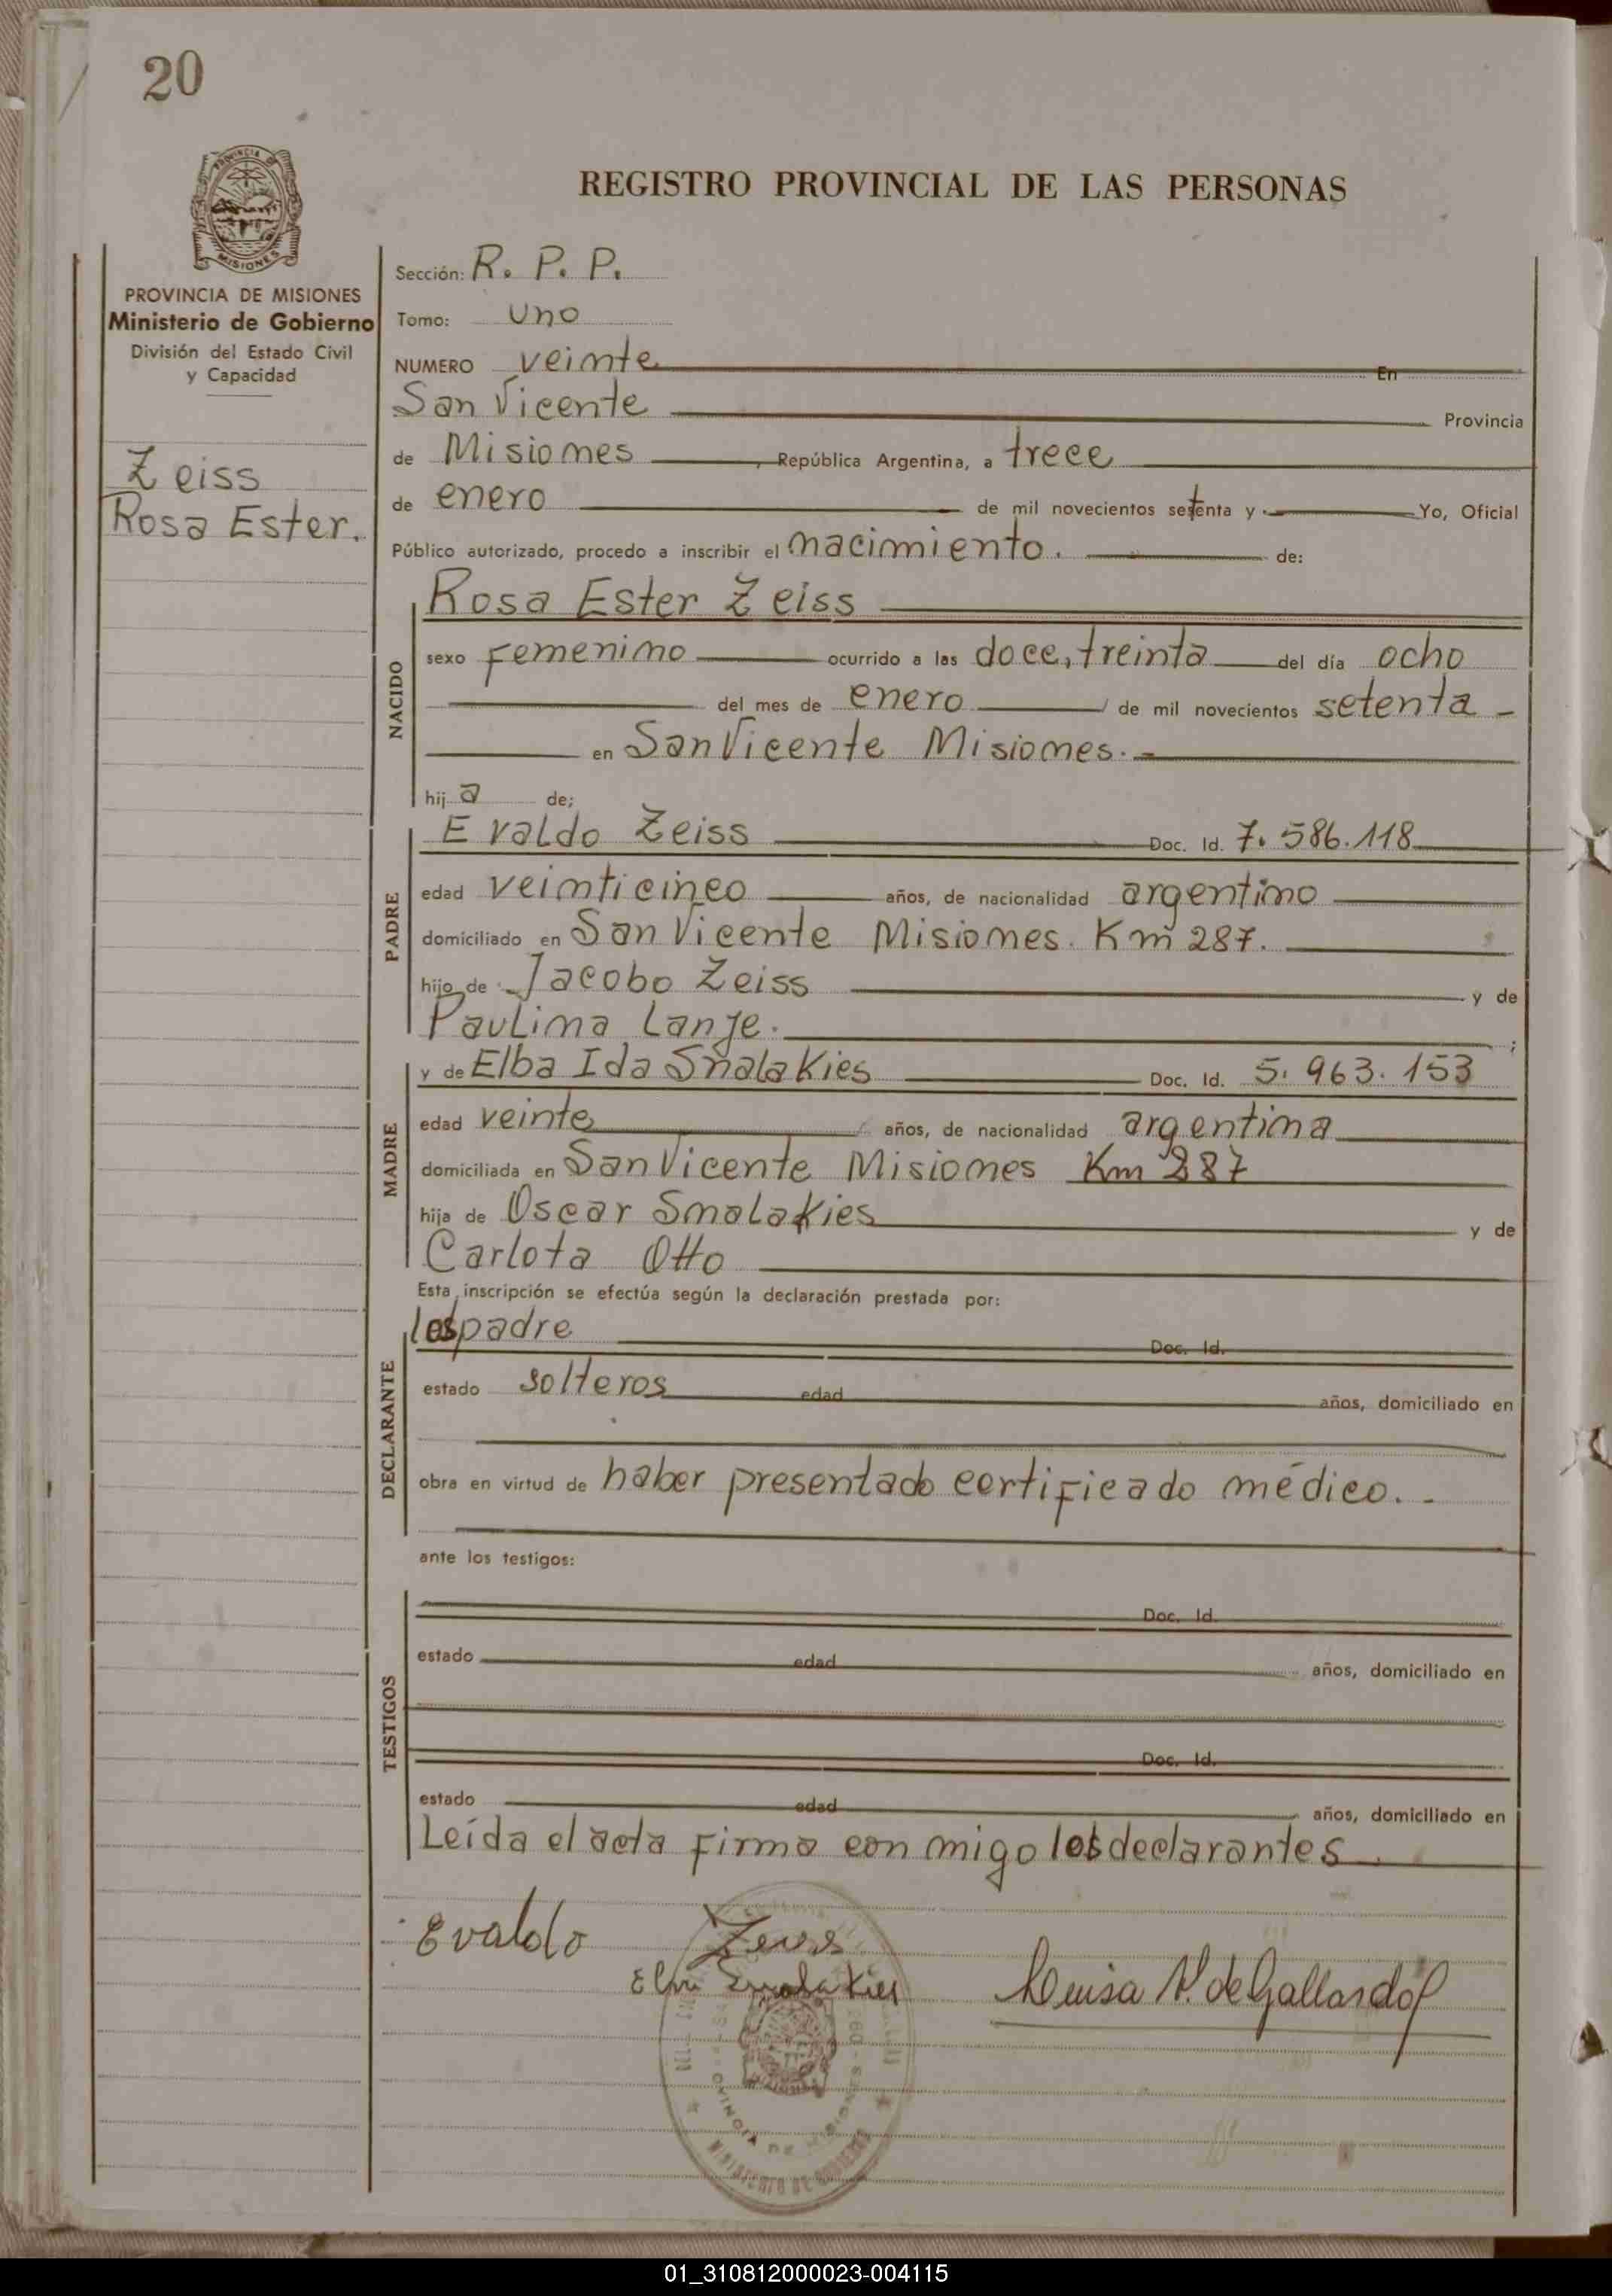 20
PROVINCIA DE MISIONES
Ministerio de Gobierno
División del Estado Civil
y Capacidad
Zeiss
Rosa Ester.
REGISTRO PROVINCIAL DE LAS PERSONAS
Sección: R. P. P.
Tomo: uno
NUMERO veinte En
San Vicente Provincia
de Misiones, República Argentina, a trece
de enero de mil novecientos setenta y Yo, Oficial
Público autorizado, procedo a inscribir el nacimiento. de:
NACIDO
Rosa Ester Zeiss
sexo Femenino ocurrido a las doce, treinta del día ocho
del mes de enero de mil novecientos setenta -
en San Vicente Misiones. -
hij a de;
PADRE
Evaldo Zeiss Doc. Id. 7.586.118
edad veinticinco años, de nacionalidad argentino
domiciliado en San Vicente Misiones. Km 287.
hijo de Jacobo Zeiss y de
Paulina Lanje. ;
MADRE
y de Elba Ida Smalakies Doc. Id. 5.963.153
edad veinte años, de nacionalidad argentina
domiciliada en San Vicente Misiones Km 287
hija de Oscar Smalakies y de
Carlota Otto
Esta inscripción se efectúa según la declaración prestada por:
DECLARANTE
los padre Doc. Id.
estado solteros edad años, domiciliado en
obra en virtud de haber presentado certificado médico. -
ante los testigos:
TESTIGOS
Doc. Id.
estado edad años, domiciliado en
Doc. Id.
estado edad años, domiciliado en
Leída el acta firma con migo los declarantes
Evaldo Zeiss
Elba Smalakies
Luisa V. de Gallardo
PROVINCIA DE MISIONES
MINISTERIO DE GOBIERNO
01_310812000023-004115